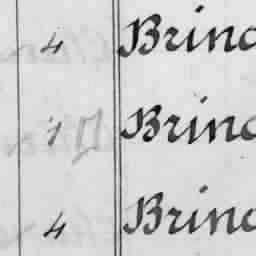 4 Brinc
1 Brinc
4 Brinc